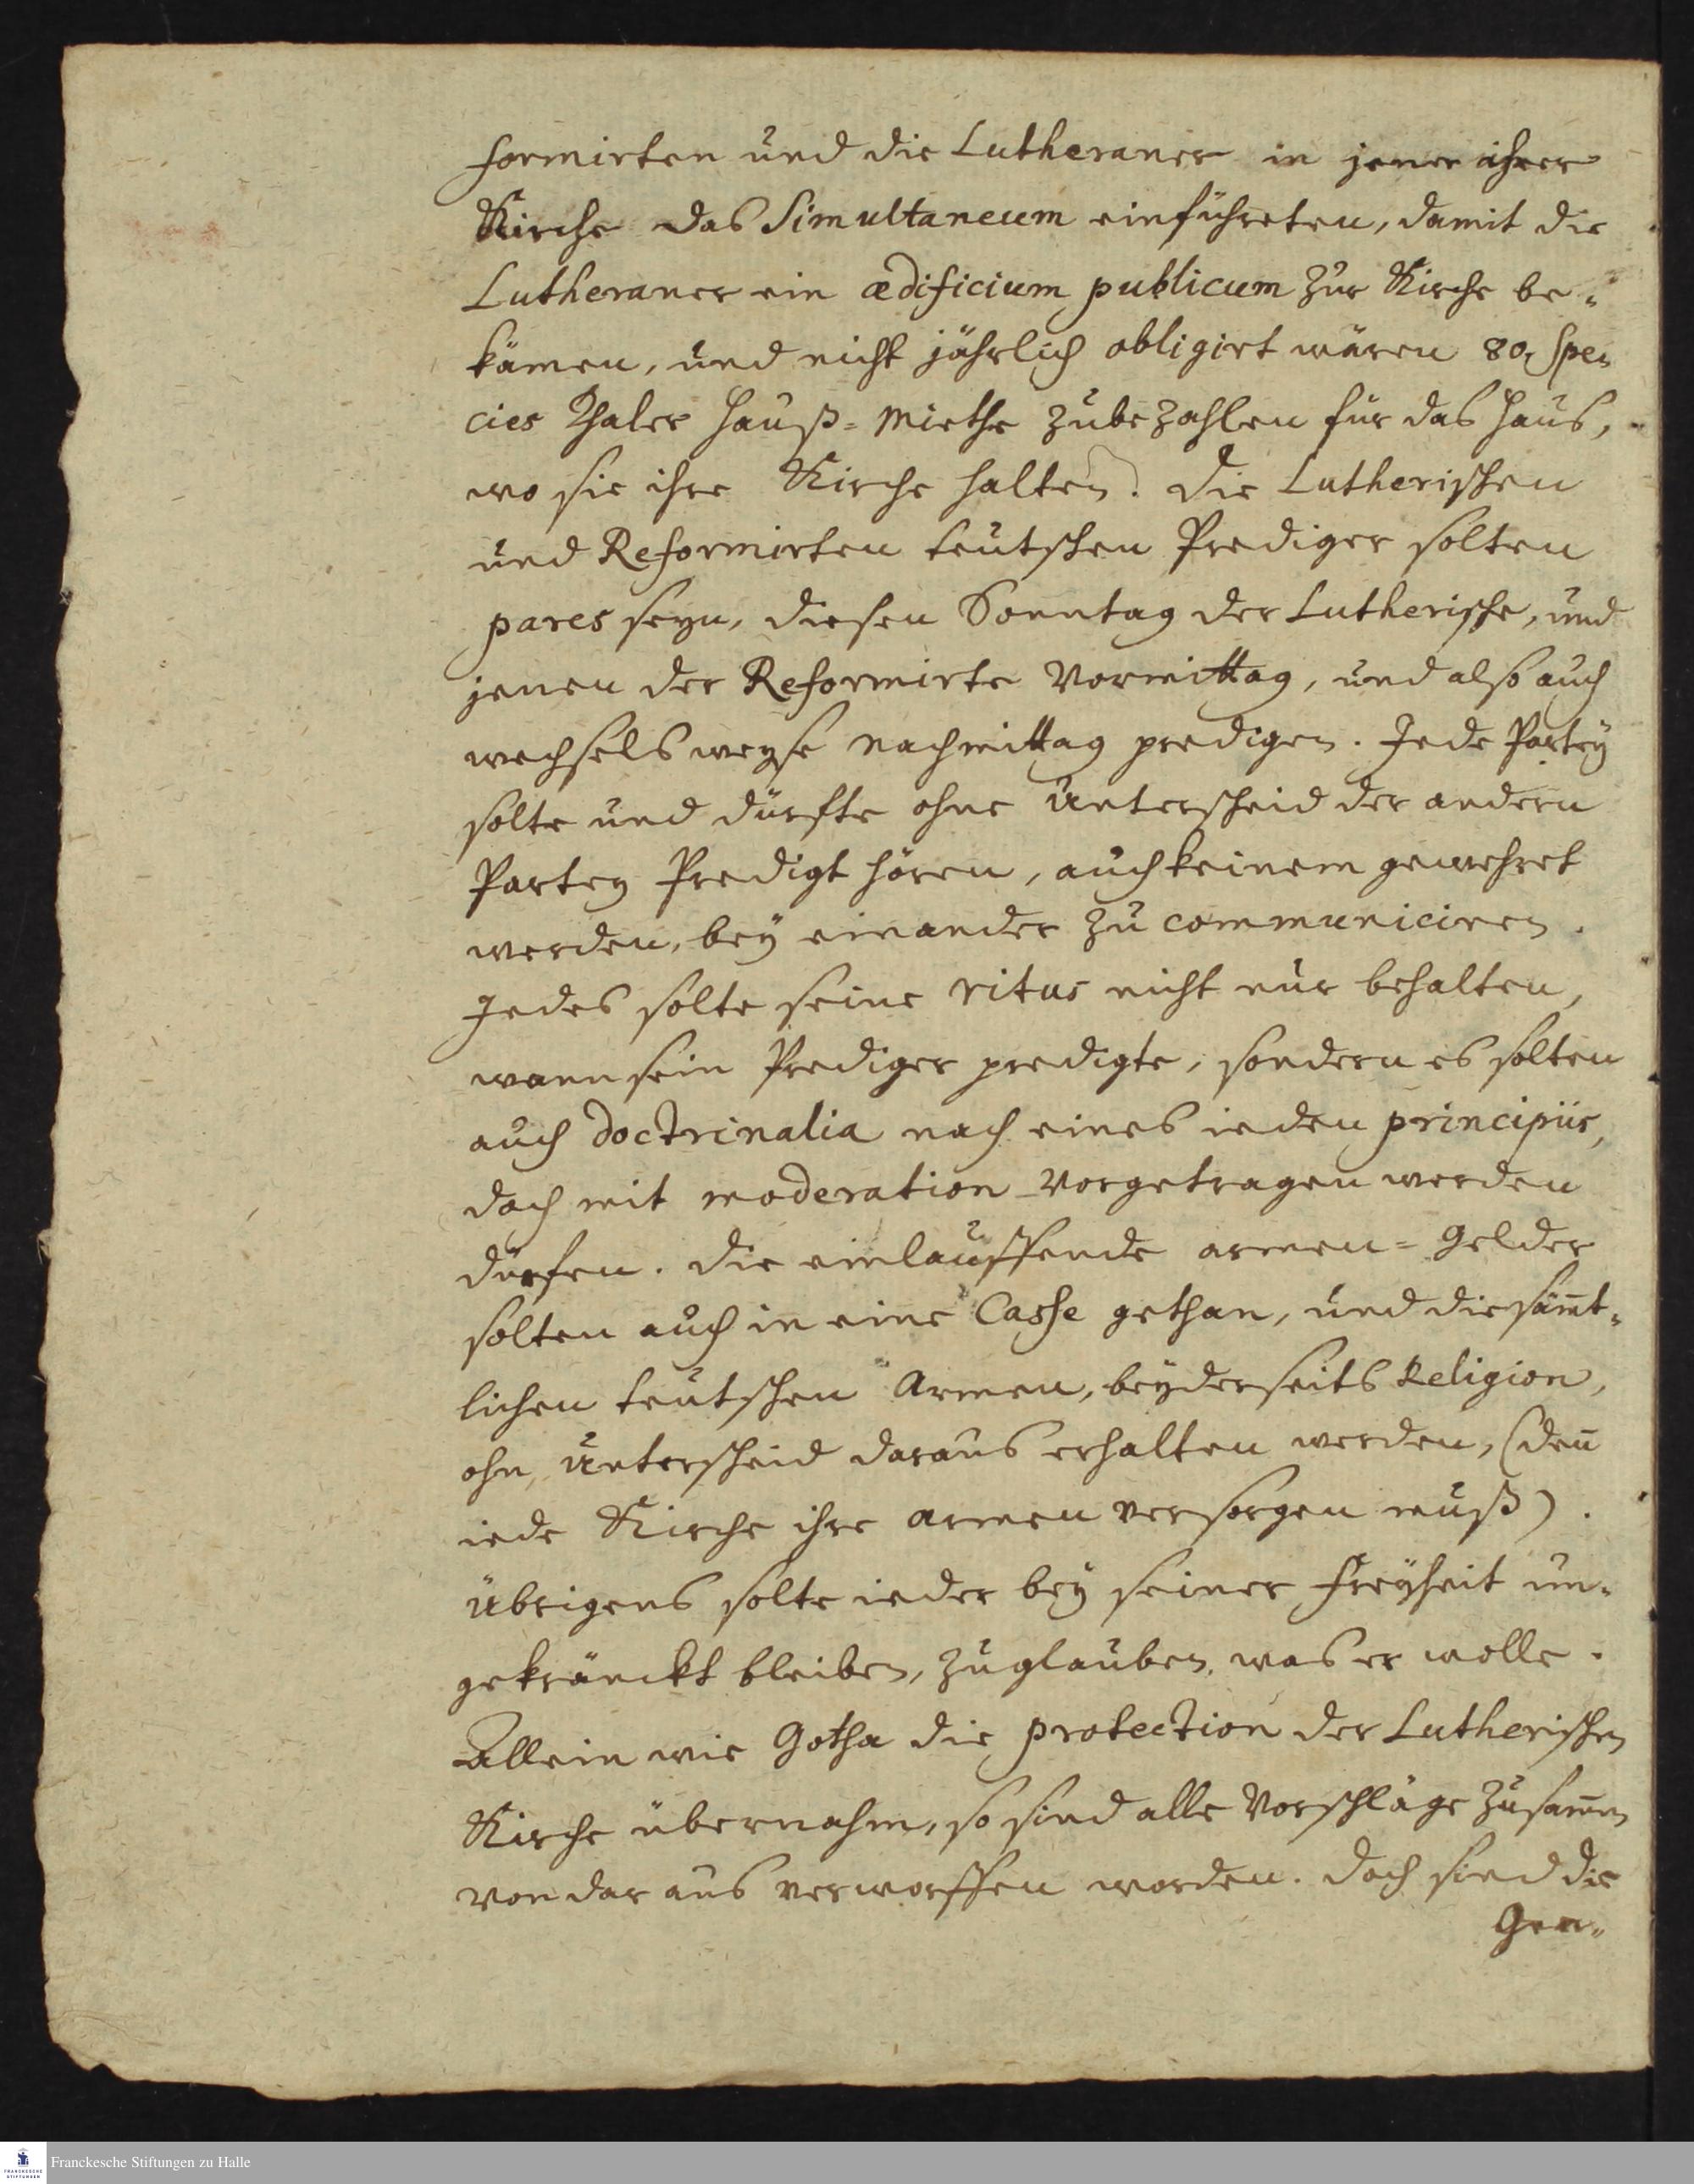 formirten und die Lutheraner in jener ihrer
Kirche das Simultaneum einführeten, damit die
Lutheraner ein ædificium publicum zur Kirche be-
kämen, und nicht jährlich obligirt wären 80. Spe-
cies Thaler Hauß-Miethe zubezahlen für das Haus,
wo sie ihre Kirche halten. Die Lutherischen
und Reformirten teutschen Prediger solten
pares seyn, diesen Sonntag der Lutherische, und
jenen der Reformirte Vormittag, und also auch
wechselsweyse Nachmittag predigen. Jede Partey
solte und dürfte ohne Unterscheid der andern
Partey Predigt hören, auch keinem gewehret
werden, bey einander zu communiciren.
Jedes solte seine ritus nicht nur behalten,
wann sein Prediger predigte, sondern es solten
auch doctrinalia nach eines ieden principiis,
doch mit moderation vorgetragen werden
dürfen. Die einlauffende armen-Gelder
solten auch in eine Casse gethan, und die sämt-
lichen teutschen Armen, beyderseits Religion,
ohn Unterscheid daraus erhalten werden, (den̄
iede Kirche ihre armen versorgen muß).
Übrigens solte ieder bey seiner Freyheit un-
gekränckt bleiben, zuglauben, was er wolle.
Allein wie Gotha die protection der Lutherischen
Kirche übernahm, so sind alle Vorschläge zusam̄en
von dar aus verworffen worden. Doch sind die
Gen-
Franckesche Stiftungen zu Halle
FRANCKESCHE
STIFTUNGEN